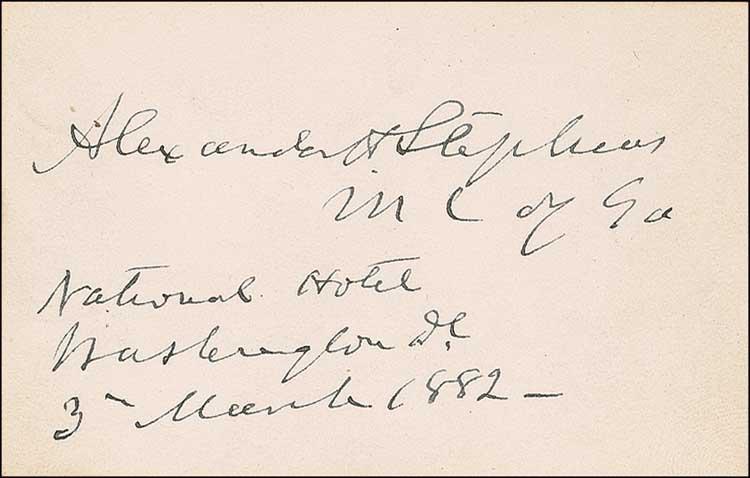 Alexander H Stephens
M C of Ga
National Hotel
Washington D.C
3 March 1882 –